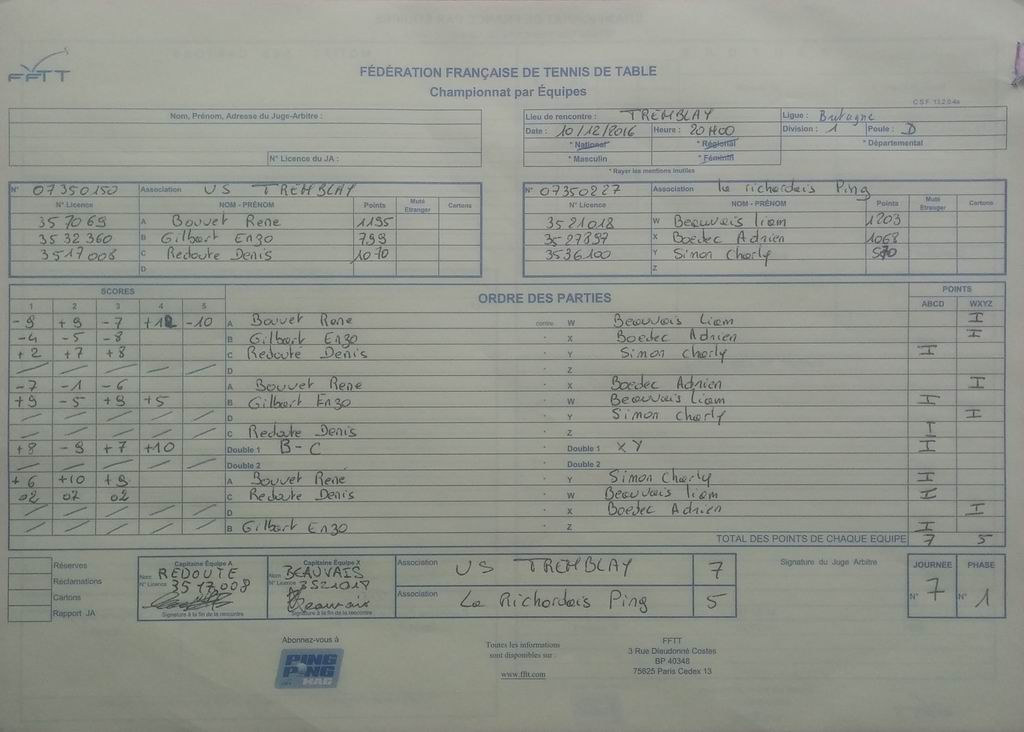 FFTT
FÉDÉRATION FRANÇAISE DE TENNIS DE TABLE
Championnat par Équipes
C S F 13.2.0.4a
Nom, Prénom, Adresse du Juge-Arbitre :
N° Licence du JA :
Lieu de rencontre : TREMBLAY Ligue : Bretagne
Date : 10/12/2016 Heure : 20H00 Division : 1 Poule : D
* National * Régional * Départemental
* Masculin * Féminin
* Rayer les mentions inutiles
N° 07350150 Association US TREMBLAY
N° Licence NOM - PRÉNOM Points Muté Etranger Cartons
357069 A Bouvet Rene 1195
3532360 B Gilbert Enzo 799
3517008 C Redoute Denis 1070
D
N° 07350227 Association La richardais Ping
N° Licence NOM - PRÉNOM Points Muté Etranger Cartons
3521018 W Beauvais liam 1203
3527897 X Boedec Adrien 1068
3536100 Y Simon Charly 570
Z
SCORES ORDRE DES PARTIES POINTS
1 2 3 4 5 ABCD WXYZ
-9 +9 -7 +12 -10 A Bouvet Rene contre W Beauvais Liam I
-4 -5 -8 B Gilbert Enzo - X Boedec Adrien I
+2 +7 +8 C Redoute Denis - Y Simon Charly I
/ / / / / D - Z
-7 -1 -6 A Bouvet Rene - X Boedec Adrien I
+9 -5 +9 +5 B Gilbert Enzo - W Beauvais Liam I
/ / / / / D - Y Simon Charly I
/ / / / / C Redoute Denis - Z I
+8 -9 +7 +10 Double 1 B-C - Double 1 XY I
/ / / / / Double 2 - Double 2
+6 +10 +9 A Bouvet Rene - Y Simon Charly I
02 02 02 C Redoute Denis - W Beauvais liam I
/ / / / / D - X Boedec Adrien I
/ / / / / B Gilbert Enzo - Z I
TOTAL DES POINTS DE CHAQUE EQUIPE 7 5
Réserves
Réclamations
Cartons
Rapport JA
Capitaine Équipe A
Nom REDOUTE
N° Licence 3517008
Signature à la fin de la rencontre
Capitaine Équipe X
Nom BEAUVAIS
N° Licence 3521018
Beauvais
Signature à la fin de la rencontre
Association US TREMBLAY 7
Association La Richardais Ping 5
Signature du Juge Arbitre
JOURNEE PHASE
N° 7 N° 1
Abonnez-vous à
PING PONG MAG
Toutes les informations
sont disponibles sur :
www.fftt.com
FFTT
3 Rue Dieudonné Costes
BP 40348
75625 Paris Cedex 13